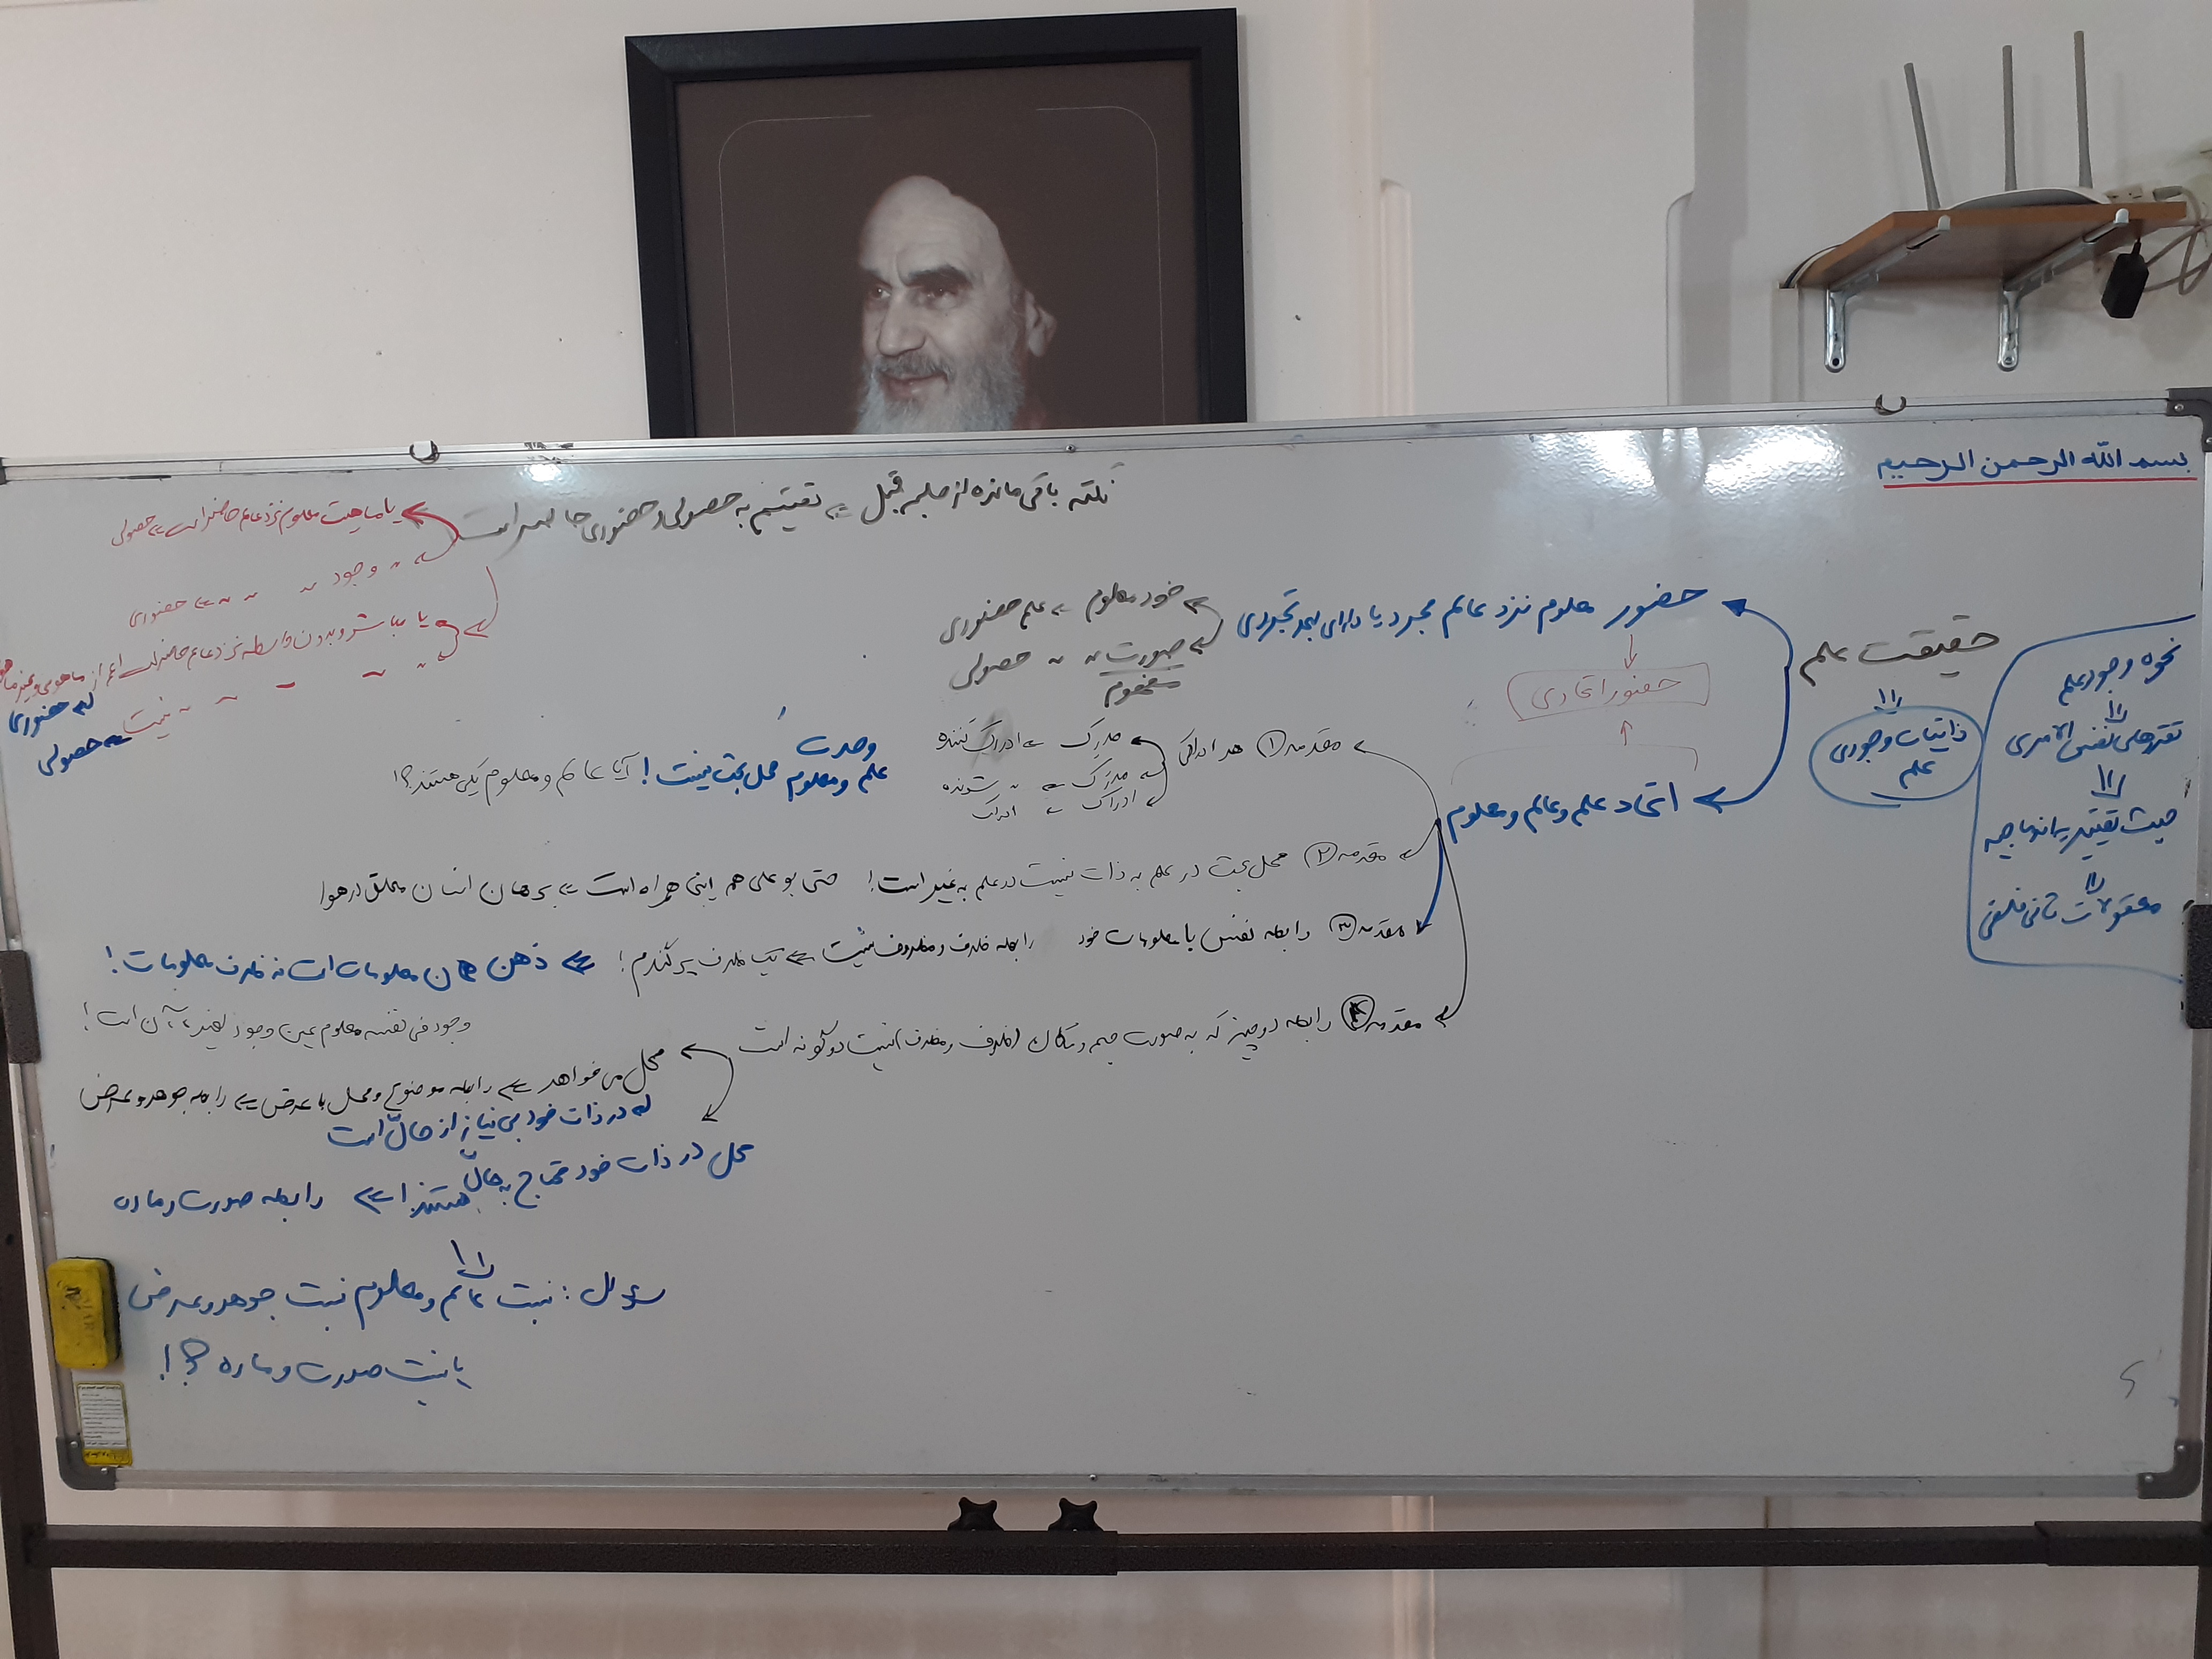 بسم الله الرحمن الرحیم
نکته باقی مانده از جلسه قبل ⇐ تقسیم به حصولی و حضوری حاصر است
یا ماهیت معلوم نزد عالم حاضر است ⇐ حصولی
" وجود " " " ⇐ حضوری
یا مباشر و بدون واسطه نزد عالم حاضر است اعم از ماهوی و غیر ماهوی
حضوری
" " " " نیست ⇐ حصولی
حقیقت علم
ذاتیات وجودی علم
نحوه وجود علم
تقررهای نفس الامری
حیث تقییدیه اندماجیه
معقولات ثانی فلسفی
حضور معلوم نزد عالم مجرد یا دارای بعد تجردی
خود معلوم ⇐ علم حضوری
صورت " " حصولی
مفهوم
حضور اتحادی
اتحاد علم و عالم و معلوم
مقدمه ① هر ادراکی
مدرِک ⇐ ادراک کننده
مدرَک ⇐ " شونده
ادراک ⇐ ادراک
وحدت علم و معلوم محل بحث نیست! آیا عالم و معلوم یکی هستند؟!
مقدمه ② محل بحث در علم به ذات نیست در علم به غیر است! حتی بوعلی هم اینجا همراه است ⇐ برهان انسان معلق در هوا
مقدمه ③ رابطه نفس با معلومات خود رابطه ظرف و مظروف نیست ⇐ یک ظرف پر گندم! ⇐ ذهن همان معلومات است نه ظرف معلومات!
وجود فی نفسه معلوم عین وجود لغیره آن است!
مقدمه ④ رابطه دو چیز که به صورت جسم و مکان (ظرف و مظروف) نیست دو گونه است
محل می خواهد ⇐ رابطه موضوع و محل با عرض ⇐ رابطه جوهر و عرض
در ذات خود بی نیاز از حالّ است
محل در ذات خود محتاج به حالّ هستند! ⇐ رابطه صورت و ماده
سؤال: نسبت عالم و معلوم نسبت جوهر و عرض
یا نسبت صورت و ماده ؟!